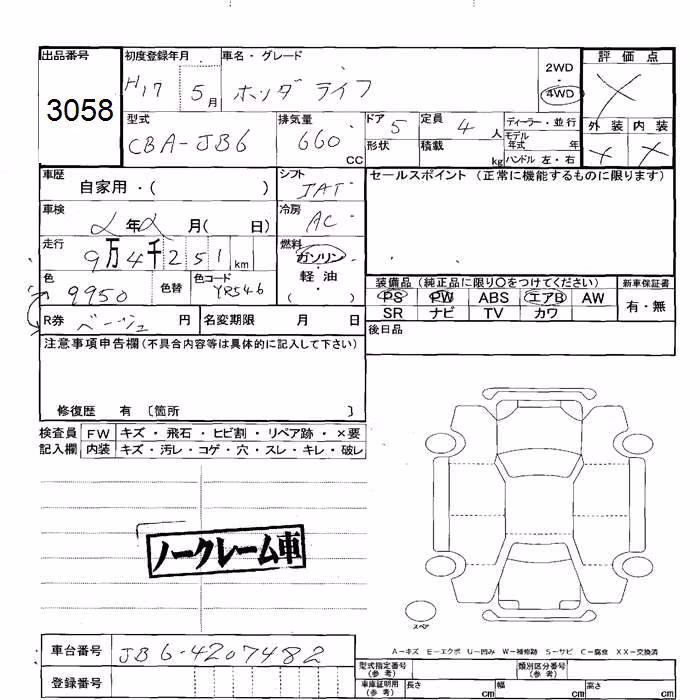 出品番号 初度登録年月 車名・グレード 2WD ・ 4WD 評価点
3058 H17 5月 ホンダ ライフ ×
型式 排気量 ドア 定員 ディーラー・並行 外装 内装
CBA-JB6 660 CC 5 4人 モデル年式 年 × ×
形状 積載 kg ハンドル 左・右
車歴 自家用・( ) シフト IAT セールスポイント (正常に機能するものに限ります)
車検 年 月( 日) 冷房 AC
走行 9万4千251km 燃料 ガソリン・軽油 ( )
色 9950 色替 色コード YR546
装備品 (純正品に限り〇をつけてください) 新車保証書
PS PW ABS エアB AW 有・無
SR ナビ TV カワ
R券 ベージュ 円 名変期限 月 日 後日品
注意事項申告欄(不具合内容等は具体的に記入して下さい)
修復歴 有 〔箇所 〕
検査員 FW キズ・飛石・ヒビ割・リペア跡・×要
記入欄 内装 キズ・汚レ・コゲ・穴・スレ・キレ・破レ
ノークレーム車
スペア
A-キズ E-エクボ U-凹み W-補修跡 S-サビ C-腐食 XX-交換済
車台番号 JB6-4207482
型式指定番号 (参考) 類別区分番号 (参考)
登録番号 車庫証明用 (参考) 長さ cm 幅 cm 高さ cm